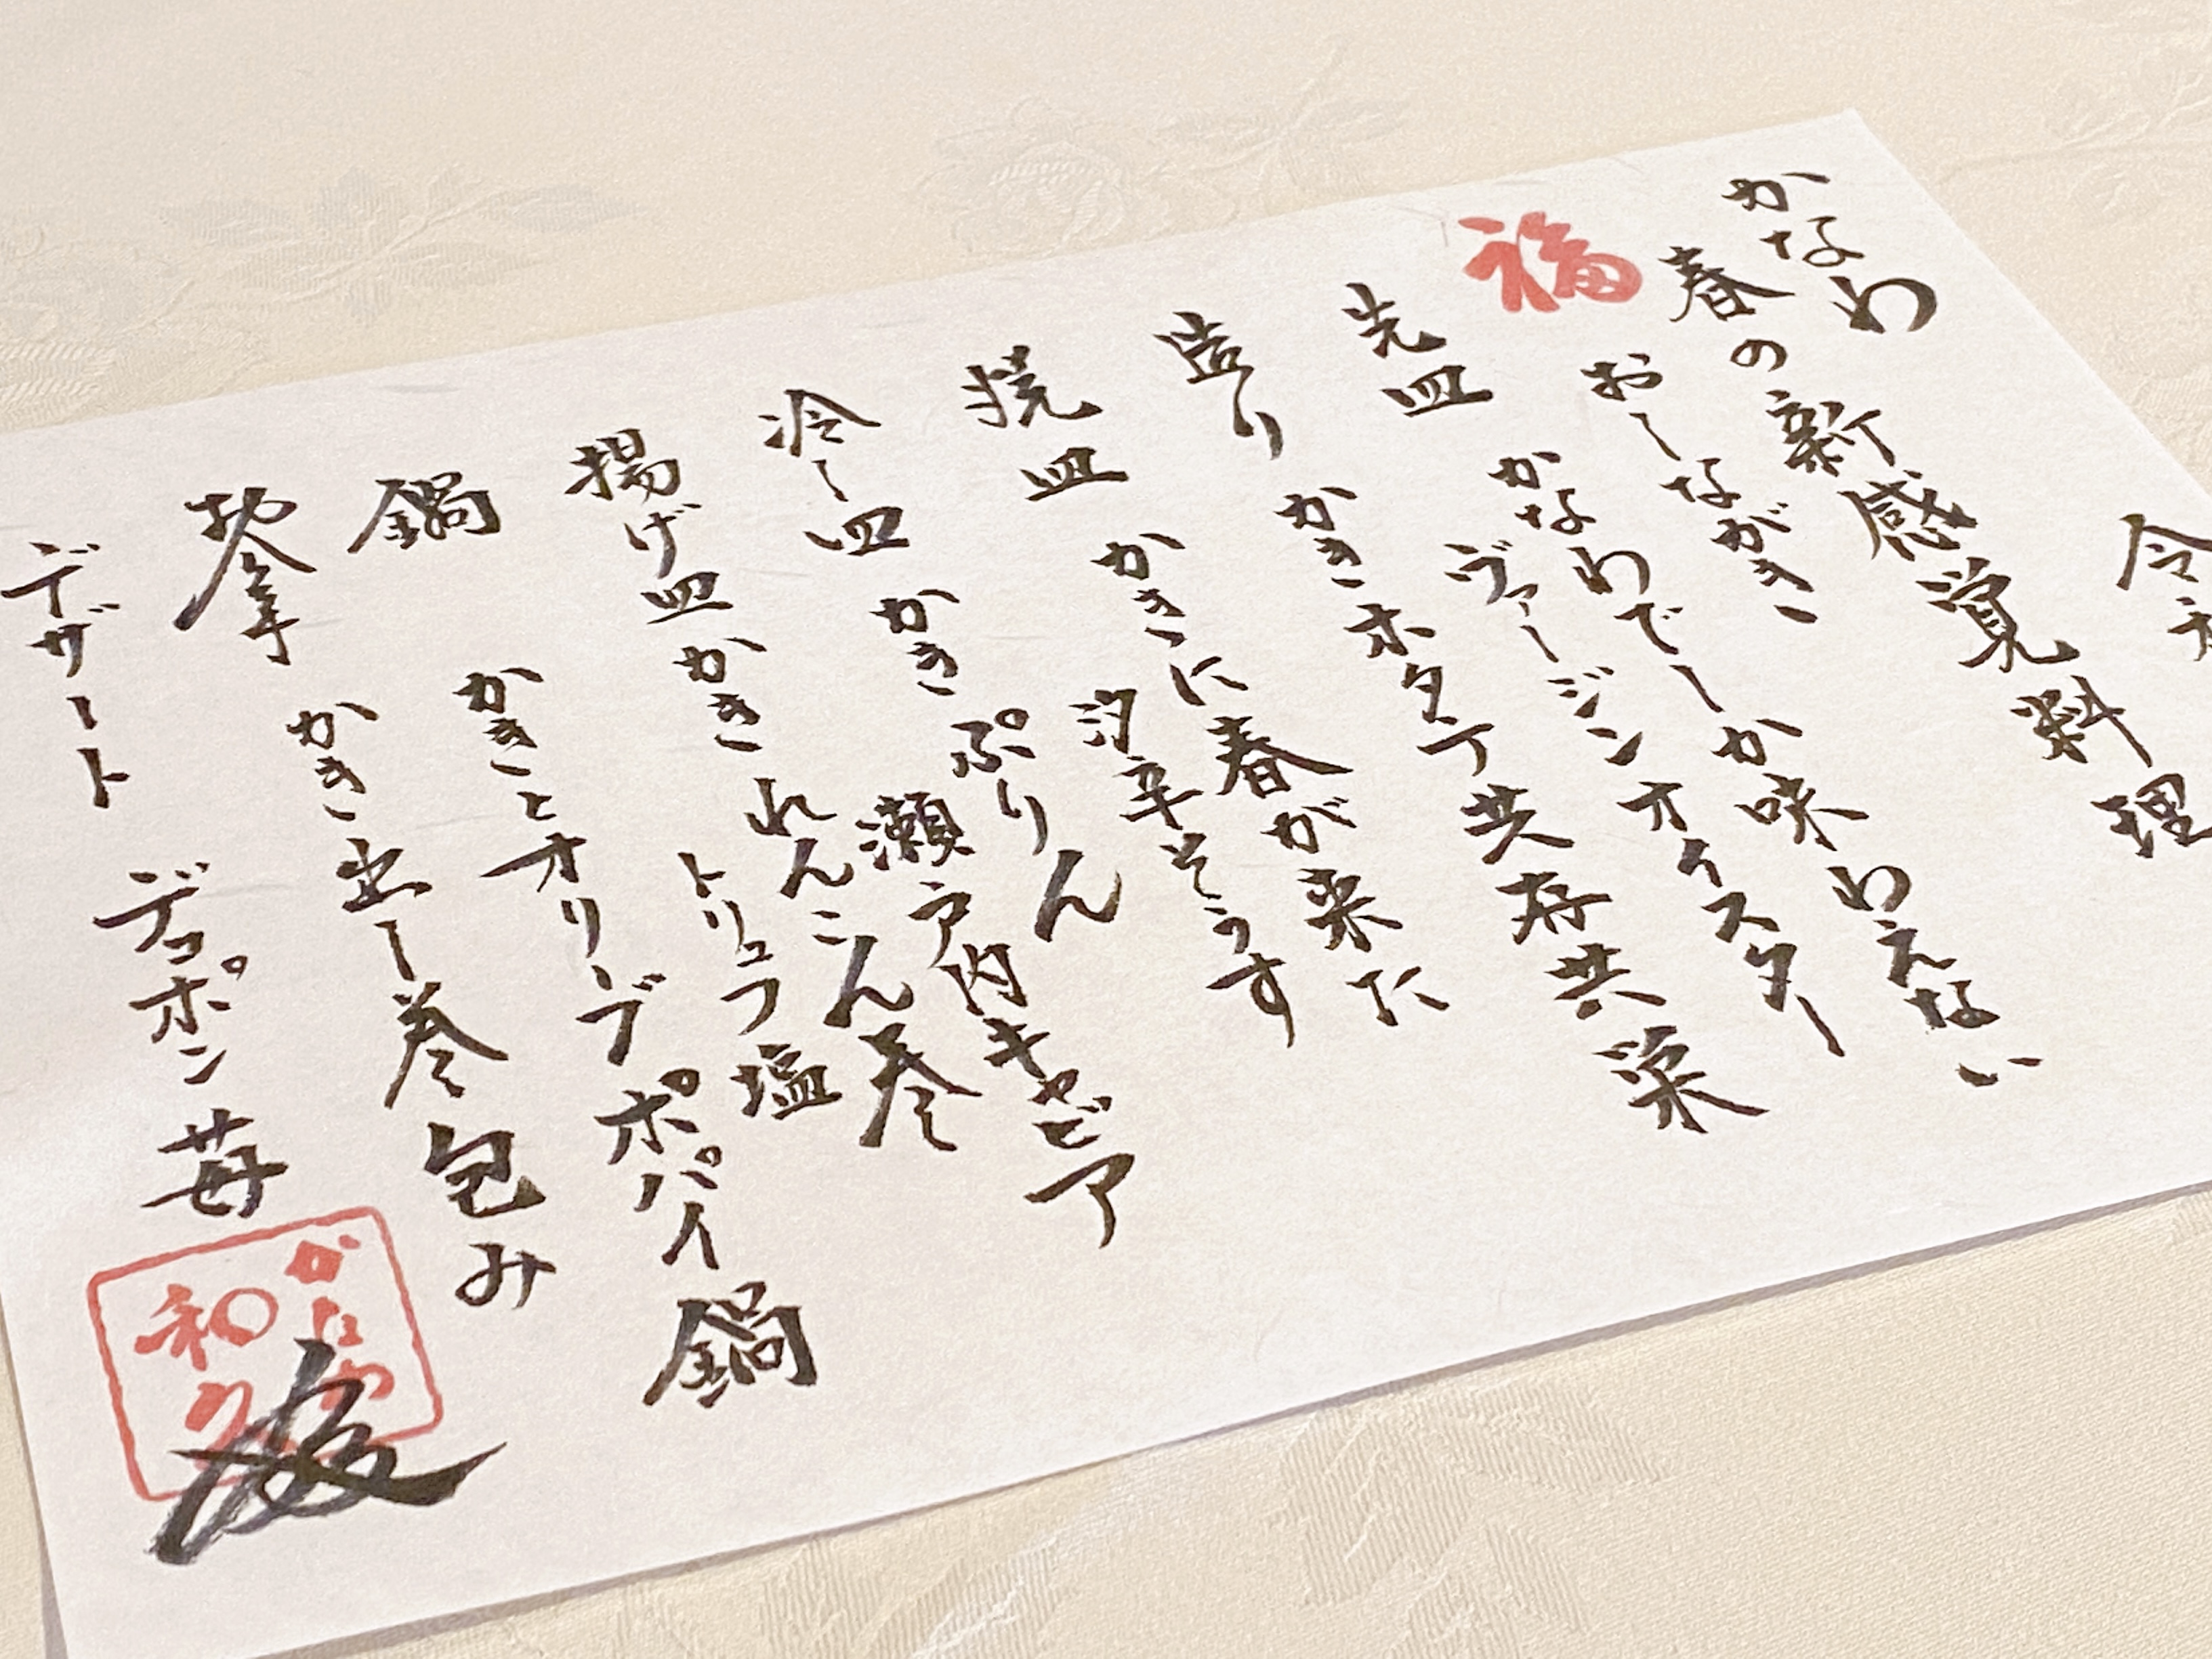 令
かなわ
春の新感覚料理
福
おしながき
先皿 かなわでしか味わえない
ヴァージンオイスター
造り かきホタテ共存共栄
焼皿 かきに春が来た
汐辛そうす
冷し皿 かきぷりん
瀬戸内キャビア
揚げ皿 かきれんこん巻
トリュフ塩
鍋 かきとオリーブポパイ鍋
かき出し巻包み
デザート デコポン苺
かなわ